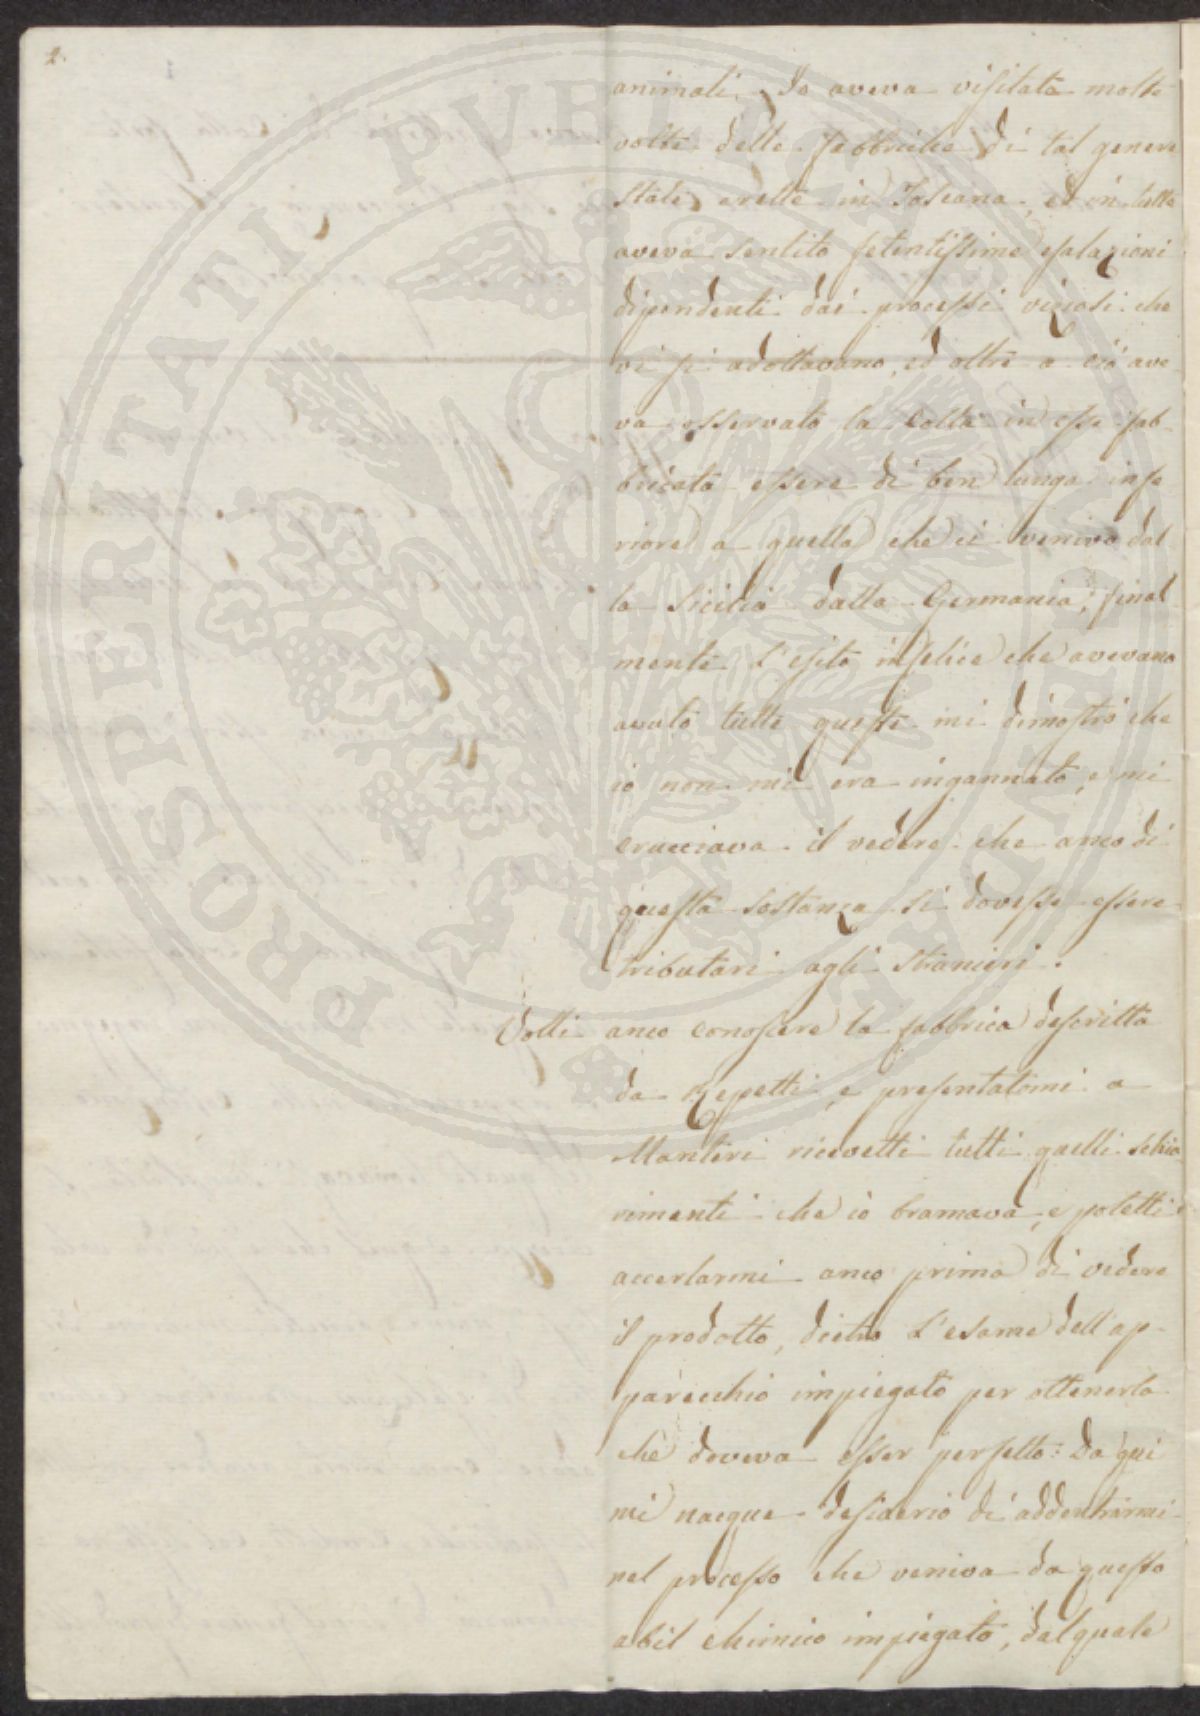 2.
animali. Io aveva visitata molte
volte delle fabbriche di tal genere
state erette in Toscana, ed in tutte
aveva sentito fetentissime esalazioni
dipendenti dai processi viziosi che
vi si adottavano, ed oltre a ciò ave-
va osservato la Colla in esse fab-
bricata essere di ben lunga infe
riore a quella che ci veniva dal
la Sicilia dalla Germania; final
mente l'esito infelice che avevano
avuto tutte queste mi dimostrò che
io non mi era ingannato, e mi
crucciava il vedere che anco di
questa sostanza si dovesse essere
tributari agli stranieri.
Volli anco conoscere la fabbrica descritta
da Repetti, e presentatomi a
Manteri ricevetti tutti quelli schia
rimenti che io bramava, e potetti
accertarmi anco prima di vedere
il prodotto, dietro l'esame dell'ap-
parecchio impiegato per ottenerlo
che doveva esser perfetto: Da qui
mi nacque desiderio di addentrarmi
nel processo che veniva da questo
abil chimico impiegato, dal quale
PROSPERITATI PVBLICAE AVGENDAE